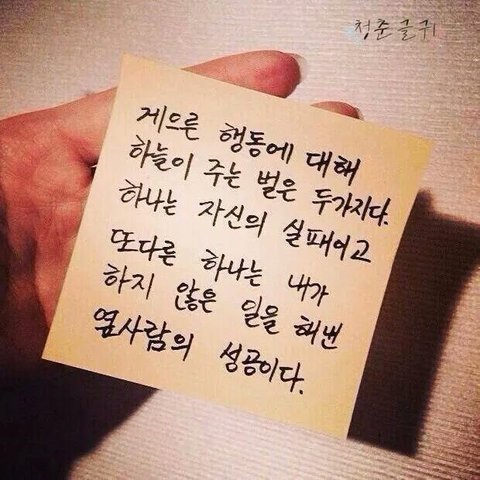 청춘글귀
게으른 행동에 대해
하늘이 주는 벌은 두가지다.
하나는 자신의 실패이고
또다른 하나는 내가
하지 않은 일을 해낸
옆사람의 성공이다.